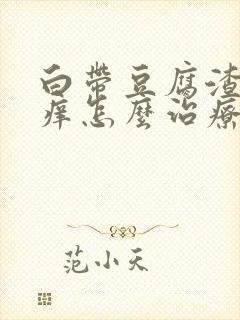 白帶豆腐渣
痒怎麼治療
范小天